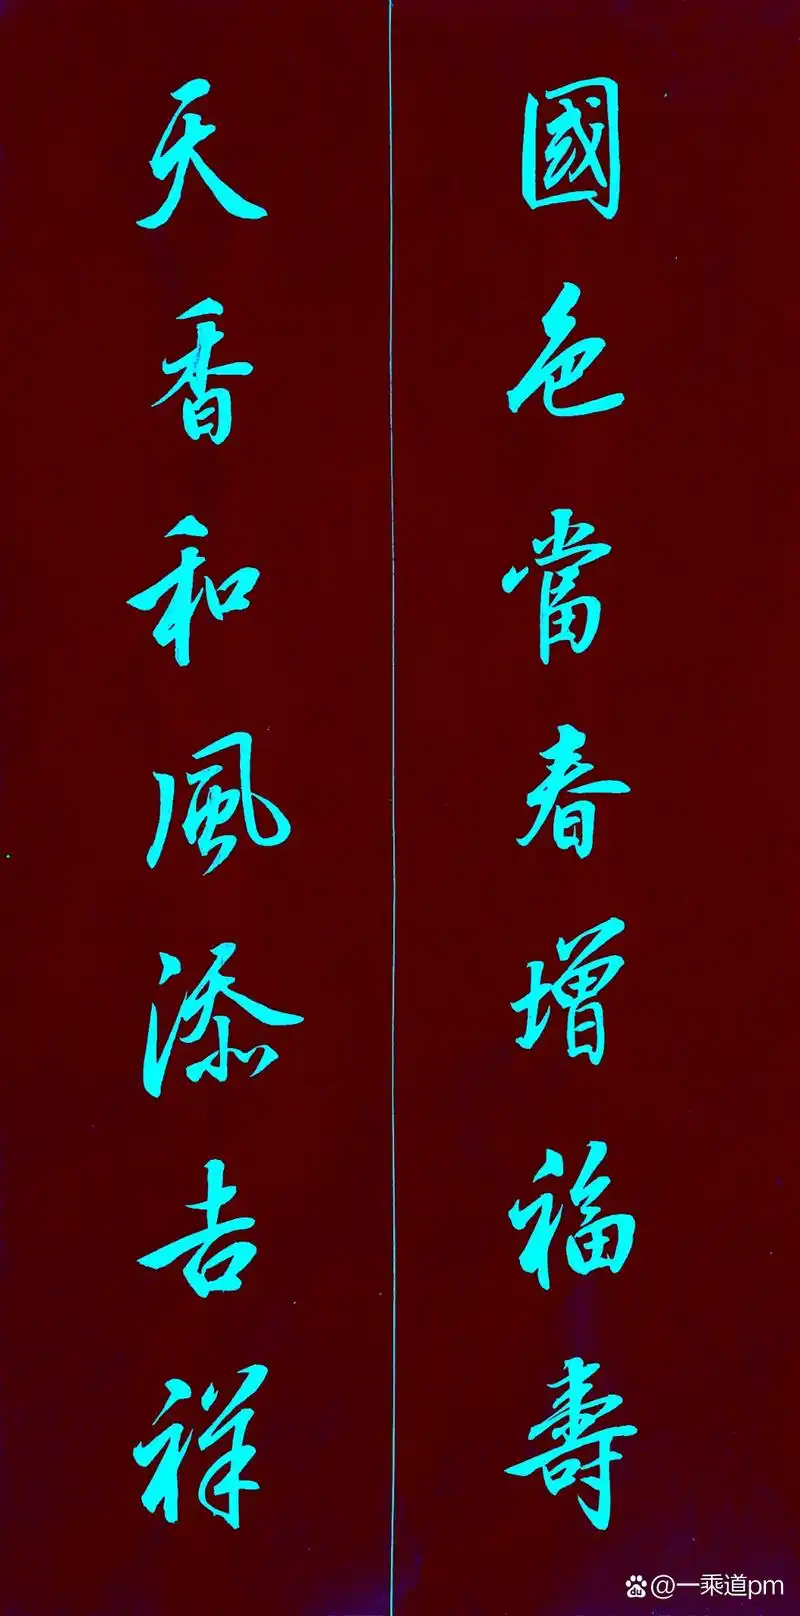 國色當春增福壽
天香和風添吉祥
@一乘道pm